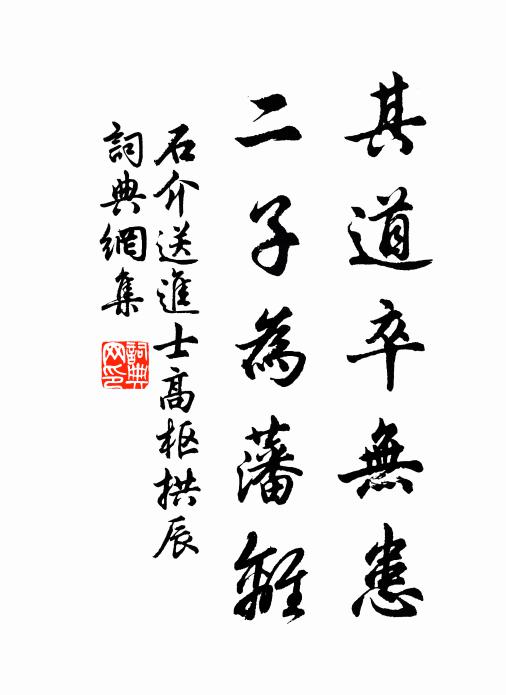 其道卒無患
二子為藩離
石介送進士高枢拱辰
詞典網集
詞典網印